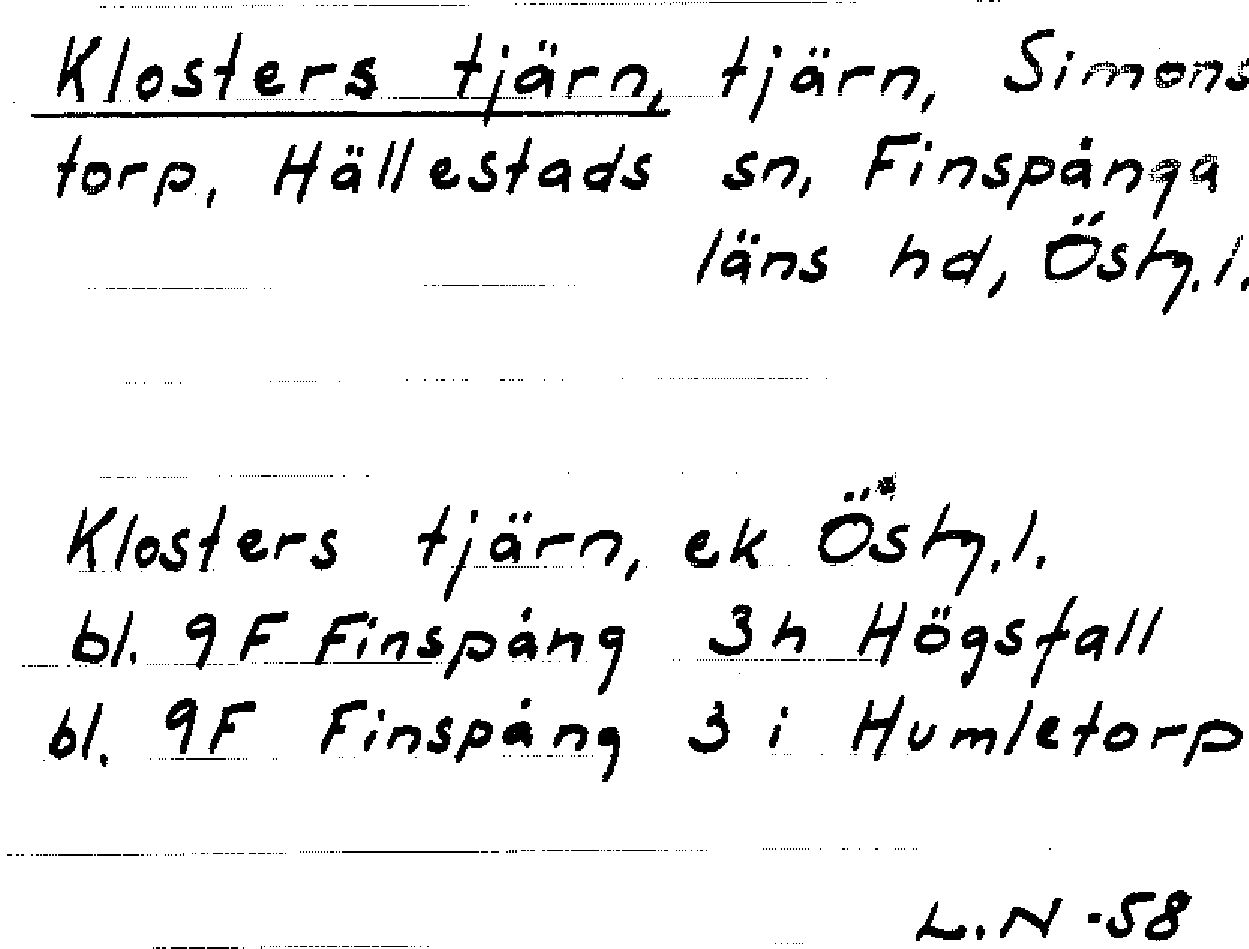 Klosters tjärn, tjärn, Simons
torp, Hällestads sn, Finspånga
läns hd, Östg.l.
Klosters tjärn, ek Östg.l.
bl. 9F Finspång 3h Högsfall
bl. 9F Finspång 3i Humletorp
L.N -58